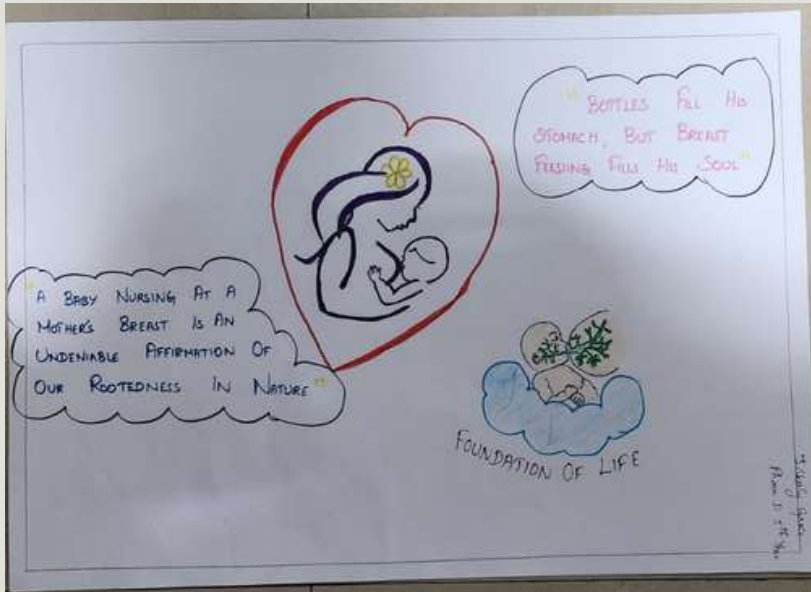 "BOTTLES FILL HIS
STOMACH, BUT BREAST
FEEDING FILLS HIS SOUL"
"A BABY NURSING AT A
MOTHER'S BREAST IS AN
UNDENIABLE AFFIRMATION OF
OUR ROOTEDNESS IN NATURE"
FOUNDATION OF LIFE